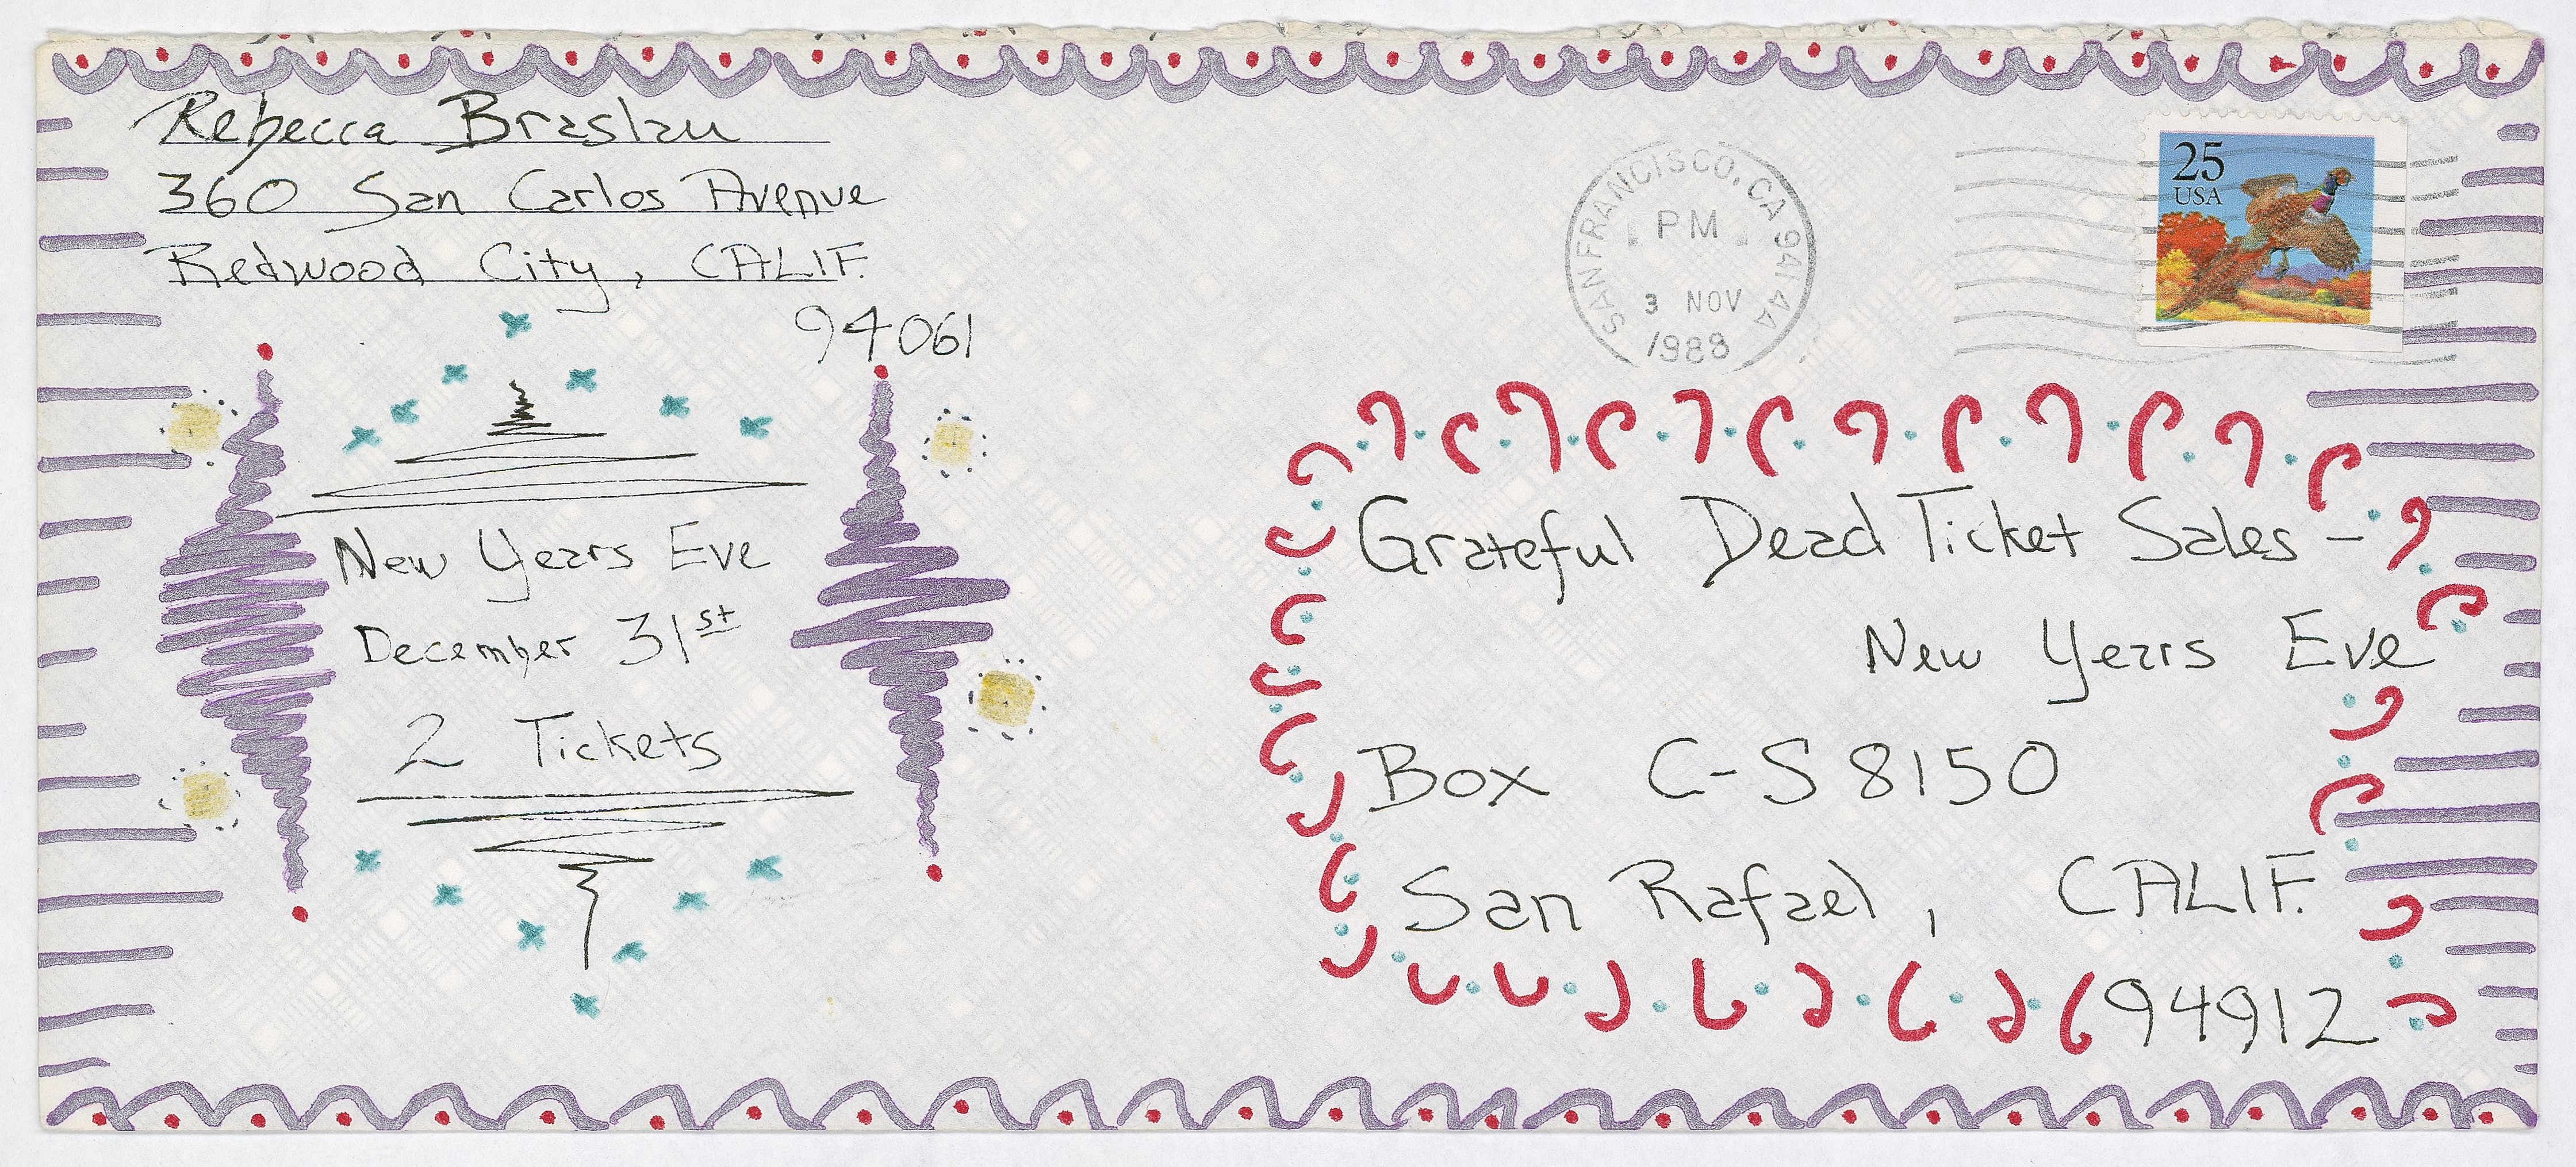 Rebecca Braslau
360 San Carlos Avenue
Redwood City, CALIF.
94061
SAN FRANCISCO, CA 941 4A
PM
3 NOV
1988
25
USA
New Years Eve
December 31st
2 Tickets
Grateful Dead Ticket Sales -
New Years Eve
Box C-S 8150
San Rafael, CALIF.
94912